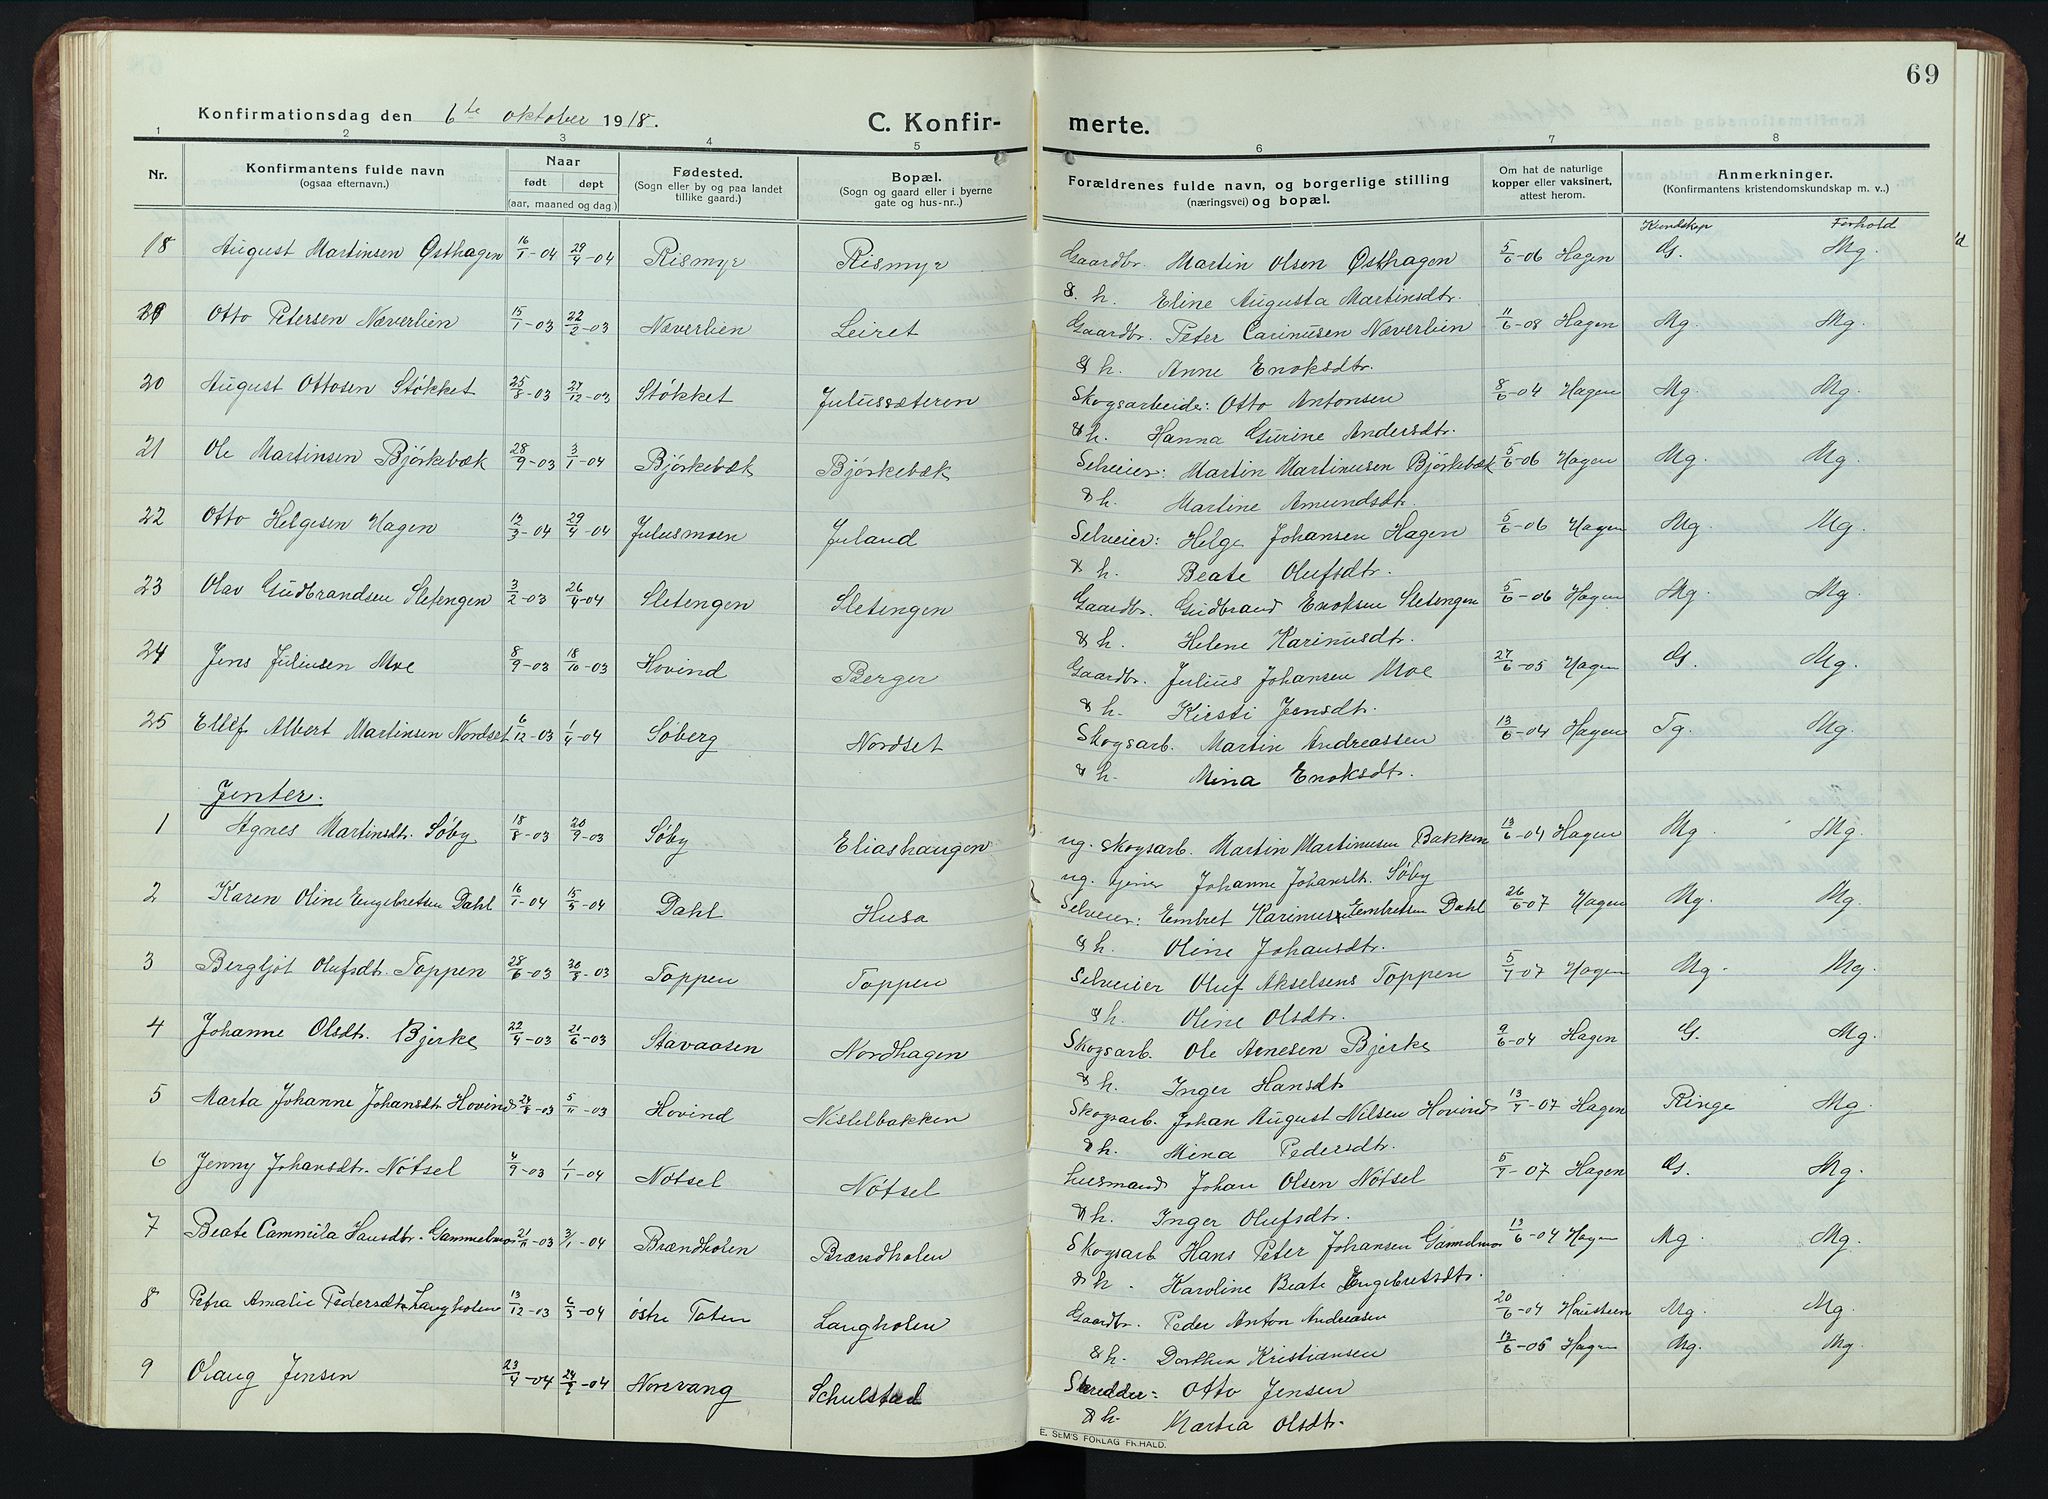 69
Konfirmationsdag den 6te oktober 1918.
C. Konfirmerte.
1 2 3 4 5 6 7 8
Nr.
Konfirmantens fulde navn
(ogsaa efternavn.)
Naar
født døpt
(aar, maaned og dag.)
Fødested.
(Sogn eller by og paa landet
tillike gaard.)
Bopæl.
(Sogn og gaard eller i byerne
gate og hus-nr..)
Forældrenes fulde navn, og borgerlige stilling
(næringsvei) og bopæl.
Om hat de naturlige
kopper eller vaksinert,
attest herom.
Anmerkninger.
(Konfirmantens kristendomskundskap m. v..)
Kundskap Forhold
18 August Martinsen Østhagen 16/1-04 29/4-04 Rismyr Rismyr Gaardbr. Martin Olsen Østhagen 5/6-06 Hagen G. Mg.
& h. Eline Augusta Martinsdtr.
19 Otto Petersen Næverlien 15/1-03 22/2-03 Næverlien Leiret Gaardbr. Peter Carinusen Næverlien 11/6-08 Hagen Mg. Mg.
& h. Anne Enoksdtr.
20 August Ottosen Støkket 25/8-03 27/12-03 Støkket Julussæteren Skogsarbeider: Otto Antonsen 8/6-04 Hagen Mg. Mg.
& h. Hanna Gurine Andersdtr.
21 Ole Martinsen Bjørkebæk 28/9-03 3/1-04 Bjørkebæk Bjørkebæk Selveier: Martin Martinusen Bjørkebæk 5/6-06 Hagen Mg. Mg.
& h. Martine Amundsdtr.
22 Otto Helgesen Hagen 12/3-04 29/4-04 Julusmoen Juland Selveier: Helge Johansen Hagen 5/6-06 Hagen Mg. Mg.
& h. Beate Olufsdtr.
23 Olav Gudbrandsen Sletengen 3/2-03 26/4-04 Sletengen Sletengen Gaardbr. Gudbrand Enoksen Sletengen 5/6-06 Hagen Mg. Mg.
& h. Helene Karinusdtr.
24 Jens Juliusen Moe 8/9-03 18/10-03 Hovind Berger Gaardbr. Julius Johansen Moe 27/6-05 Hagen G. Mg.
& h. Kirsti Jensdtr.
25 Ellif Albert Martinsen Nordset 6/12-03 1/4-04 Søberg Nordset Skogsarb. Martin Andreassen 13/6-04 Hagen Tg. Mg.
& h. Mina Enoksdtr.
Jenter.
1 Agnes Martinsdtr. Søby 18/8-03 20/9-03 Søby Eliashaugen ug. skogsarb. Martin Martinusen Bakken 13/6-04 Hagen Mg. Mg.
ug. Johanne Johansdtr. Søby
2 Karen Oline Engebretsen Dahl 16/1-04 15/5-04 Dahl Husa Selveier: Embret Karinus Embretsen Dahl 26/6-07 Hagen Mg. Mg.
& h. Oline Johansdtr.
3 Bergljot Olufsdtr. Toppen 28/6-03 30/8-03 Toppen Toppen Selveier Oluf Akselsens Toppen 5/7-07 Hagen Mg. Mg.
& h. Oline Olsdtr.
4 Johanne Olsdtr. Bjerke 22/4-03 21/6-03 Stavaasen Nordhagen Skogsarb. Ole Arnesen Bjerke 9/6-04 Hagen G. Mg.
& h. Inger Hansdtr
5 Marta Johanne Johansdtr Hovind 24/8-03 5/11-03 Hovind Nistelbakken Skogsarb. Johan August Nilsen Hovind 13/7-07 Hagen Ringe Mg.
& h. Mina Pedersdtr.
6 Jenny Johansdtr. Nötsel 4/9-03 1/1-04 Nötsel Nötsel husmand Johan Olsen Nötsel 5/7-07 Hagen G. Mg.
& h. Inger Olufsdtr.
7 Beate Cammila Hansdtr. Gammelmo 21/11-03 3/1-04 Brændholen Brændholen Skogsarb Hans Peter Johansen Gammelmo 13/6-04 Hagen Mg. Mg.
& h. Karoline Beate Engebretsdtr.
8 Petra Amalie Pedersdtr Langholen 13/12-03 6/3-04 østre Toten Langholen Gaardbr. Peder Anton Andreasen 20/6-04 Mg. Mg.
& h. Dorthea Kristiansen
9 Olaug Jensen 23/4-04 04 Norvang Schulstad Skredder: Otto Jensen 12/6-05 Hagen Mg. Mg.
& h. Martia Olsdtr.
E. SEM'S FORLAG FR.HALD.